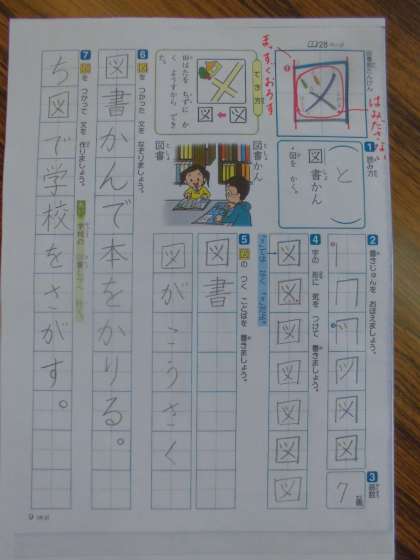 はみださない
まっすぐおろす
1 読み方
と
図書かん
・図を かく。
2 書きじゅんを おぼえましょう。
3 画数
7画
でき方
田はたを ちずに か
く ようすから でき
た。
図
図
図書かん
図書
4 字の 形に 気を つけて 書きましょう。
図
図
図
図
図
図
図
5 図の つく ことばを 書きましょう。
図書
図がこうさく
6 図を つかった 文を なぞりましょう。
図書かんで本をかりる。
7 図を つかって 文を 作りましょう。
ち図で学校をさがす。
9